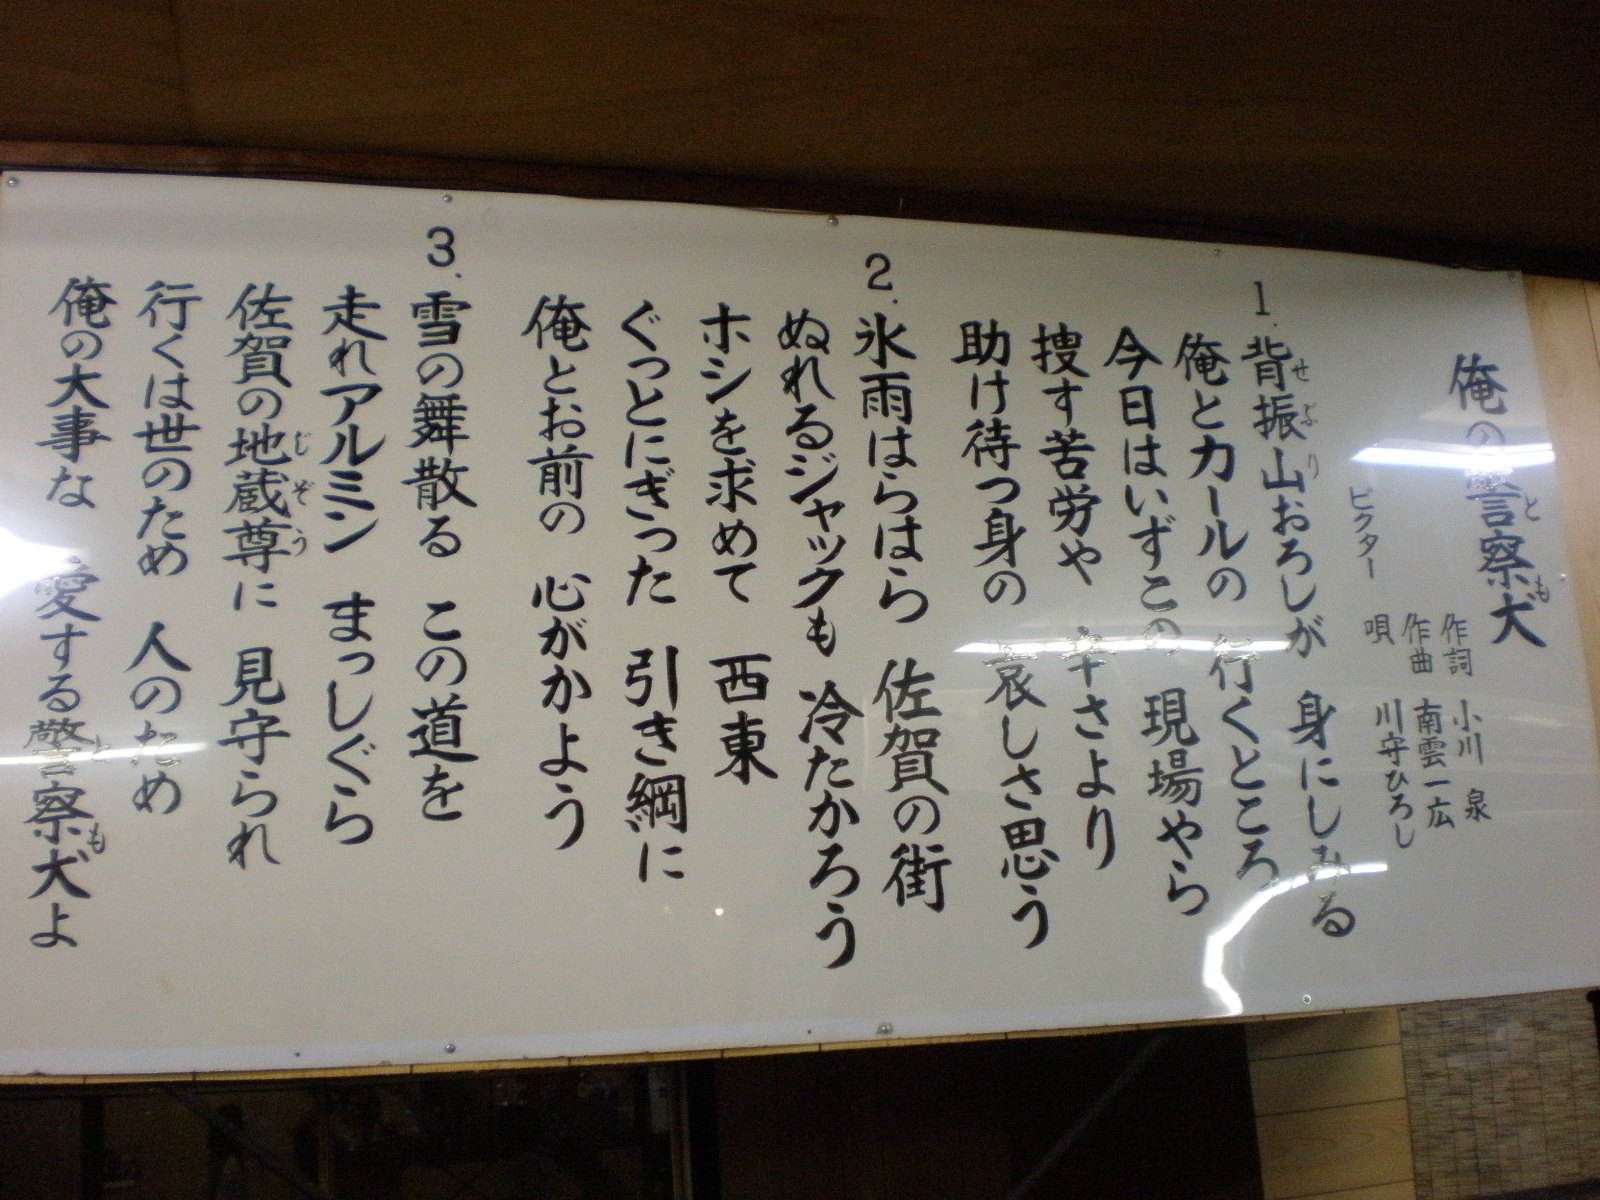 俺の警察犬
とも
ビクター
作詞 小川 泉
作曲 南雲一広
唄 川守ひろし
1. 背振山おろしが 身にしみる
せぶり
俺とカールの 行くところ
今日はいずこの 現場やら
捜す苦労や 辛さより
助け待つ身の 哀しさ思う
2. 氷雨はらはら 佐賀の街
ぬれるジャックも 冷たかろう
ホシを求めて 西東
ぐっとにぎった 引き綱に
俺とお前の 心がかよう
3. 雪の舞散る この道を
走れアルミン まっしぐら
佐賀の地蔵尊に 見守られ
じぞう
行くは世のため 人のため
俺の大事な 愛する警察犬よ
とも